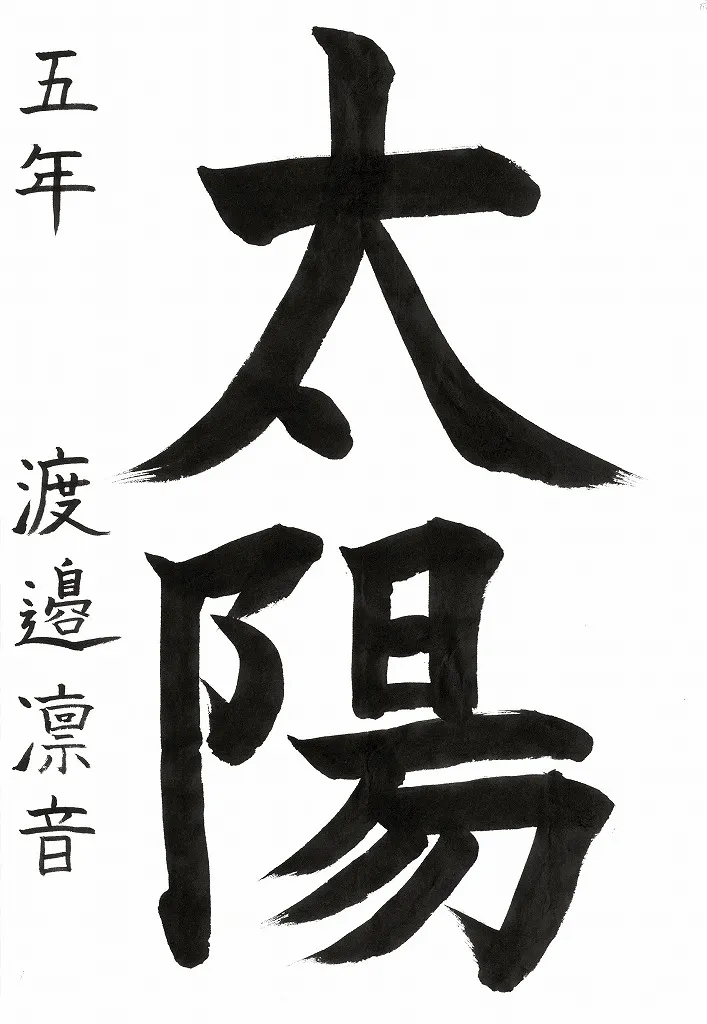 太陽
五年 渡邉凛音